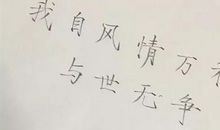 我自风情万
与世无争